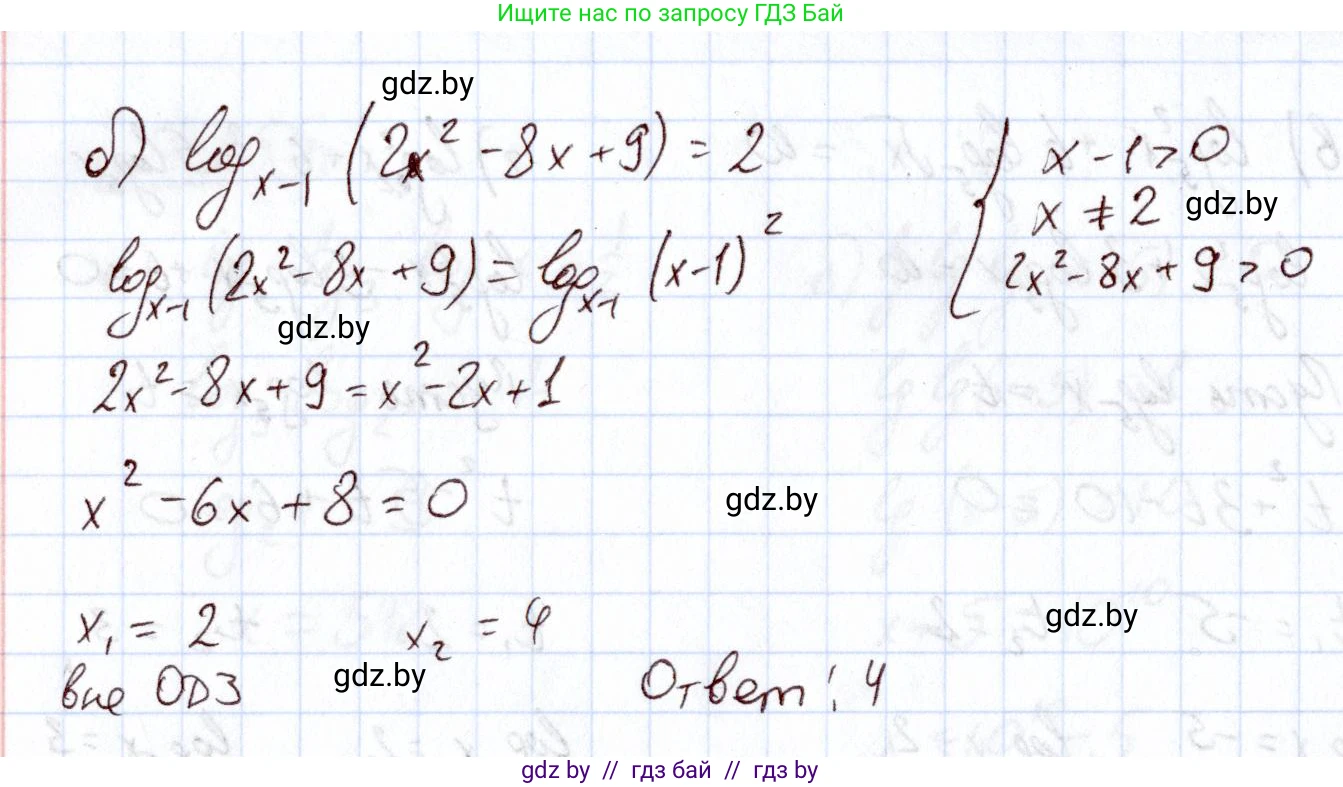 Ищите нас по запросу ГДЗ Бай
gdz.by
б) log_{x-1} (2x² - 8x + 9) = 2
{ x - 1 > 0
x ≠ 2
gdz.by
2x² - 8x + 9 > 0
log_{x-1} (2x² - 8x + 9) = log_{x-1} (x-1)²
gdz.by
2x² - 8x + 9 = x² - 2x + 1
x² - 6x + 8 = 0
gdz.by
x₁ = 2 x₂ = 4
gdz.by
вне ОДЗ
gdz.by
Ответ: 4
gdz by // гдз бай // гдз by